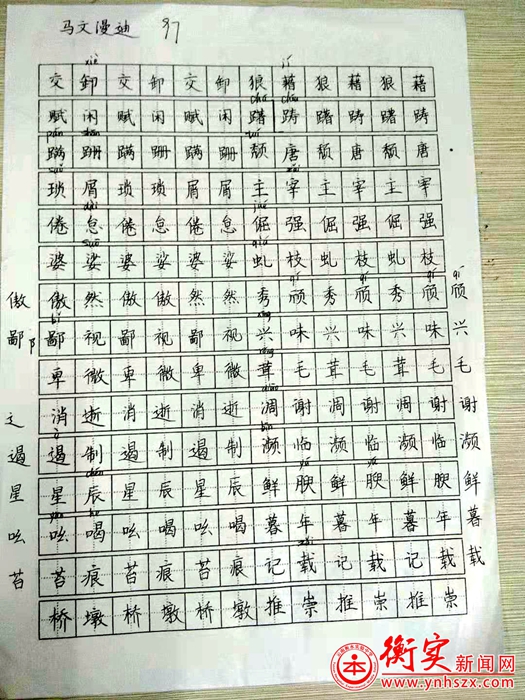 马文漫迪 97
xiè jí
交卸交卸交卸狼藉狼藉狼藉
chú chú
赋闲赋闲赋闲踌躇踌躇踌
pán shān tuí
蹒跚蹒跚蹒跚颓唐颓唐颓唐
suǒ zǎi
琐屑琐琐屑屑主宰主宰主宰
dài jué
倦怠倦怠倦怠倔强倔强倔强
suō qiú
婆娑婆娑婆娑虬枝虬枝虬枝
qí qí qí
傲 傲然傲傲然然秀颀秀颀秀颀 颀
bǐ
鄙阝 鄙视鄙视鄙视兴味兴味兴味 兴
róng
卑微卑微卑微茸毛茸毛茸毛 毛
diāo
辶 消逝消逝消逝凋谢凋谢凋谢 谢
è bīn
遏 遏制遏制遏制濒临濒临濒临 濒
chén yú yú
星 星辰星辰星辰鲜腴鲜腴鲜腴 鲜
yāo he
吆 吆喝吆喝吆喝暮年暮年暮年 暮
zǎi
苔 苔痕苔痕苔痕记载记载记载 载
桥墩桥墩桥墩推崇推崇推崇
衡实新闻网
www.ynhszx.com